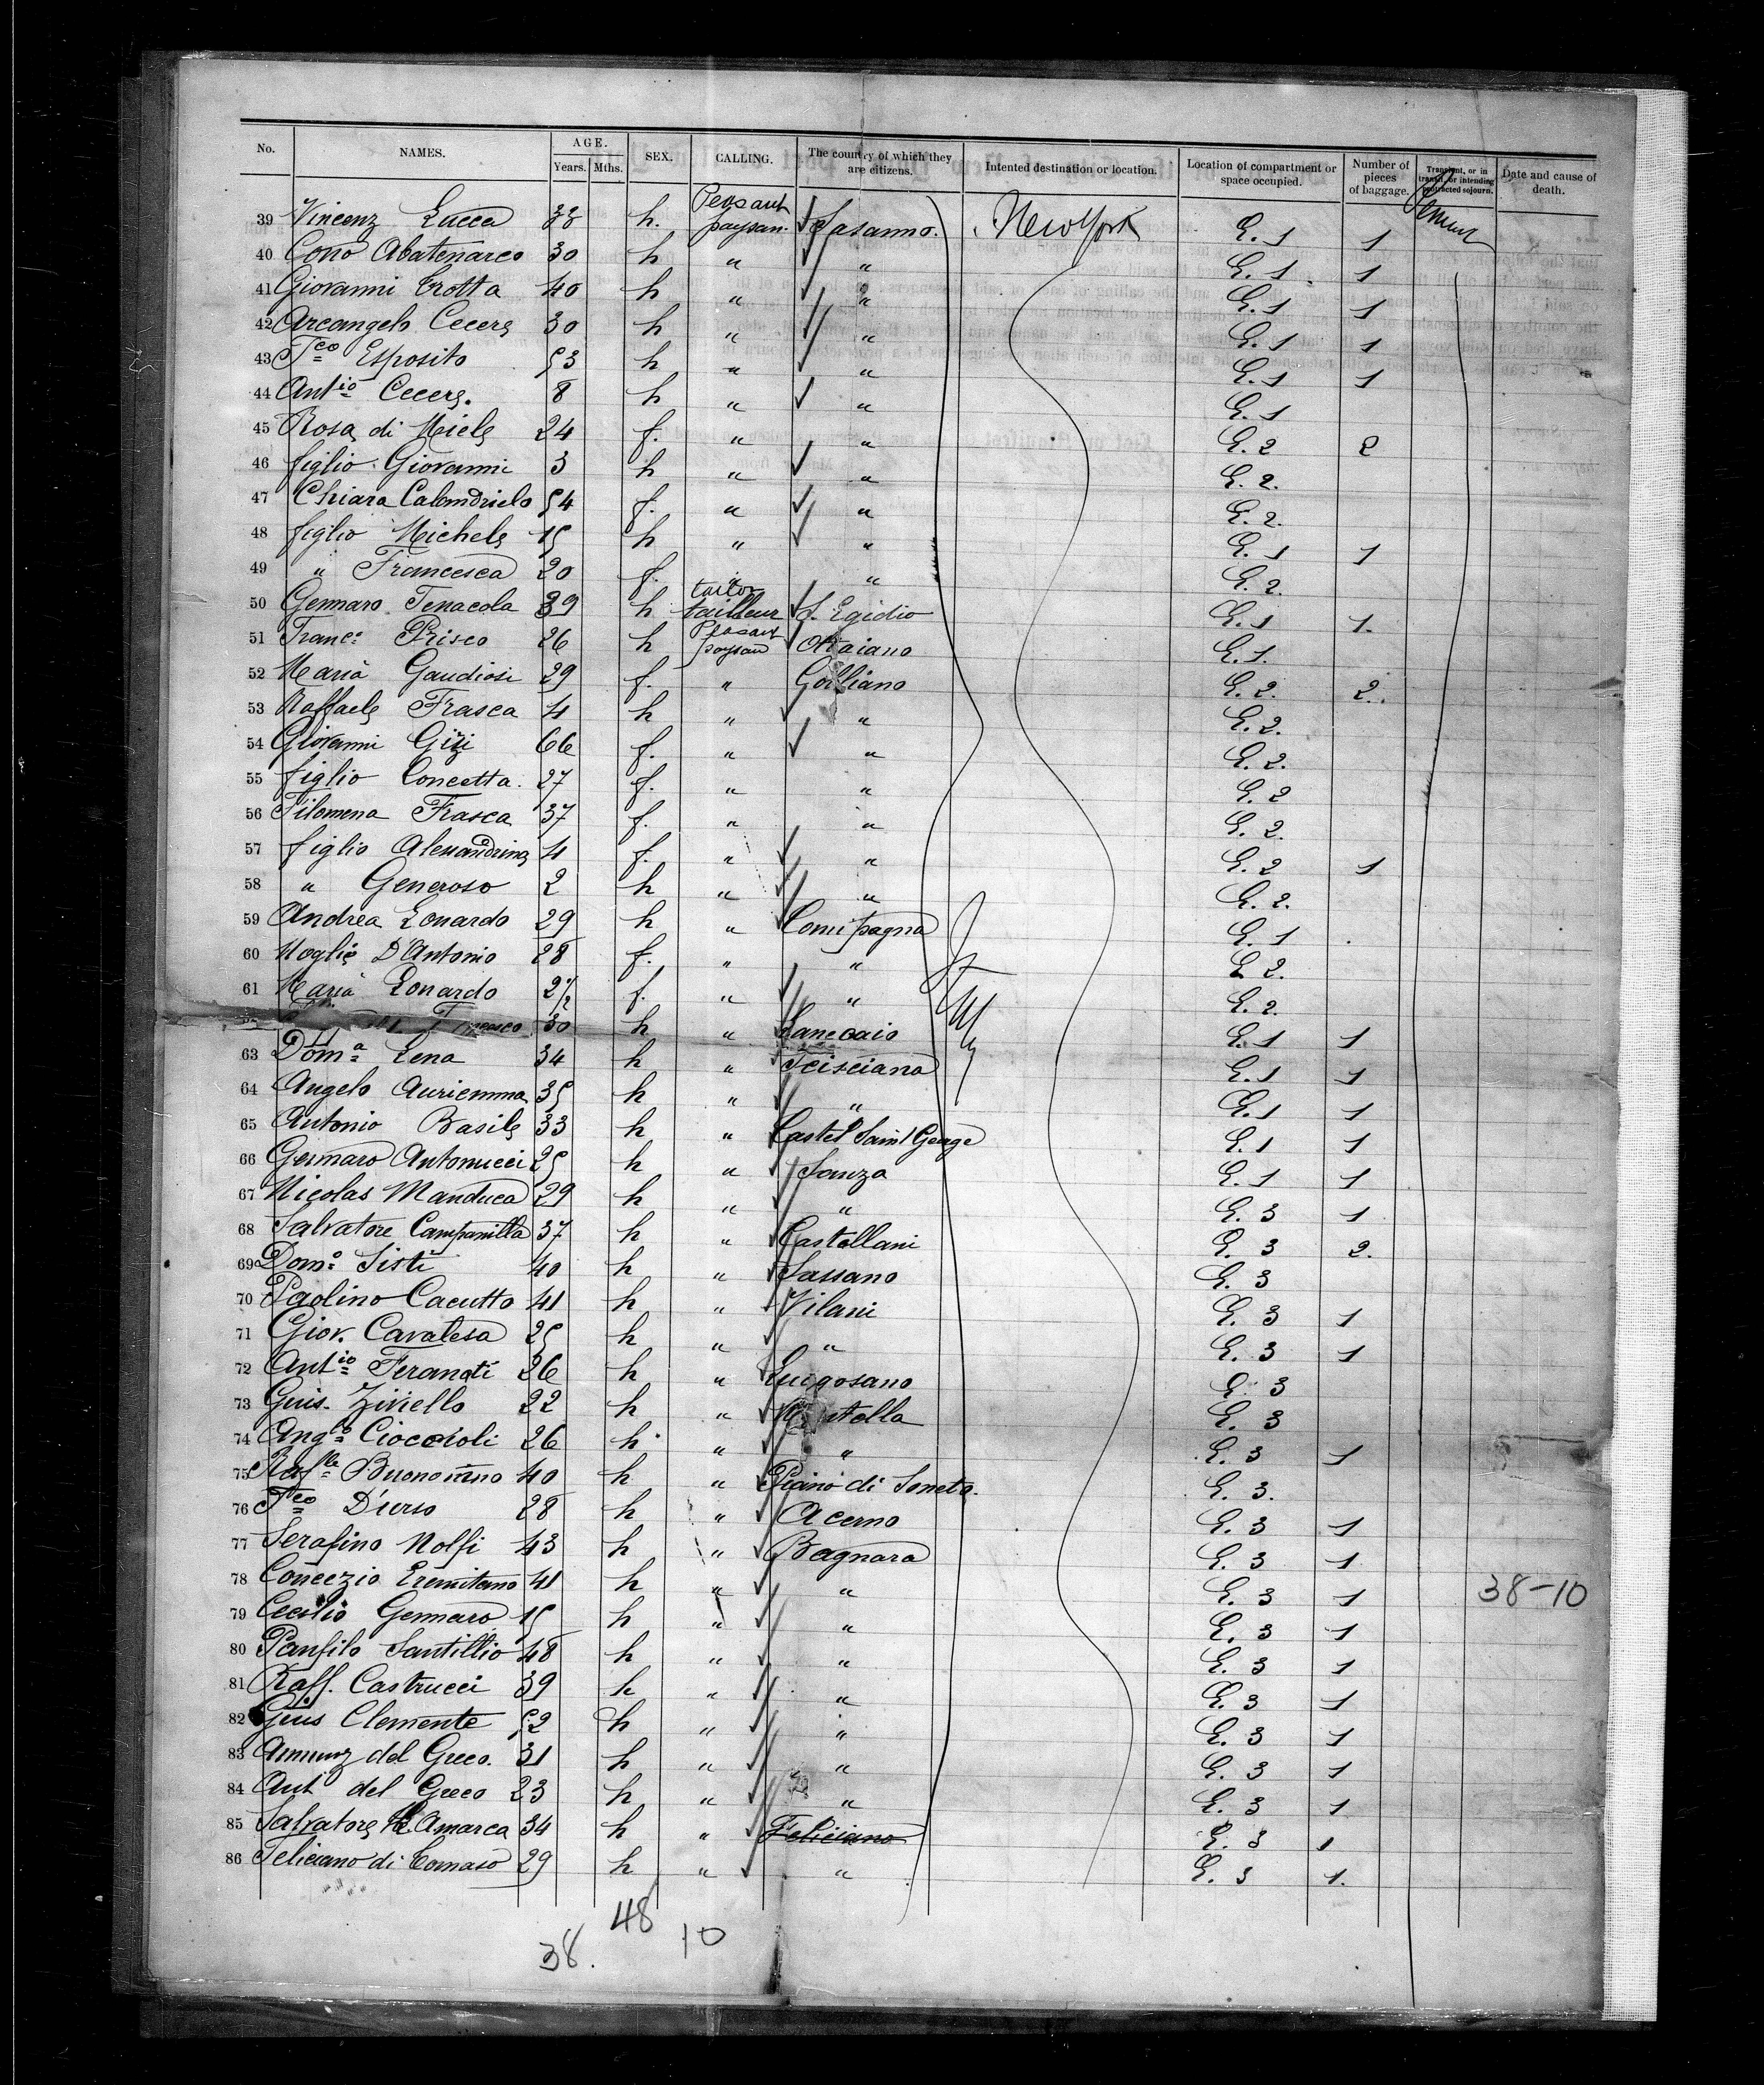 No. NAMES. AGE. Years. Mths. SEX. CALLING. The country of which they are citizens. Intented destination or location. Location of compartment or space occupied. Number of pieces of baggage. Transient, or in transit, or intending protracted sojourn. Date and cause of death.
39 Vincenz Lucca 38 h. Peasant paysan. Sasanno. New York E. 1 1
40 Cono Abatemarco 30 h " " E. 1 1
41 Giovanni Trotta 40 h " " E. 1 1
42 Arcangelo Cecere 30 h " " E. 1 1
43 Fco Esposito 53 h " " E. 1 1
44 Antio Cecere. 8 h " " E. 1
45 Rosa di Miele 24 f. " " E. 2 2
46 figlio Giovanni 3 h " " E. 2.
47 Chiara Calandrielo 54 f. " " E. 2.
48 figlio Michele 15 h " " E. 1 1
49 " Francesca 20 f. " " E. 2.
50 Gennaro Tenacola 39 h tailor tailleur S. Egidio E. 1 1.
51 Franco Prisco 26 h Peasant paysan Ottaiano E. 1.
52 Maria Gaudiosi 29 f. " Golliano E. 2. 2.
53 Raffaele Frasca 4 h " " E. 2.
54 Giovanni Gizi 66 f. " " E. 2.
55 figlio Concetta. 27 f. " " E. 2
56 Filomena Frasca 37 f. " " E. 2.
57 figlio Alessandrina 4 f. " " E. 2 1
58 " Generoso 2 h " " E. 2.
59 Andrea Lonardo 29 h " Comipagna E. 1
60 Moglie D'Antonio 28 f. " " E 2.
61 Maria Lonardo 2 1/2 f. " " E. 2.
30 h " E. 1 1
63 Doma Lena 34 h " Scisciana E. 1 1
64 Angelo Auriemma 35 h " " E. 1 1
65 Antonio Basile 33 h " Castel Saint George E. 1 1
66 Gennaro Antonucci 25 h " Sanza E. 1 1
67 Nicolas Manduca 29 h " " E. 3 1
68 Salvatore Campanilla 37 h " Castellani E. 3 2.
69 Domo Sisti 40 h " Sassano E. 3
70 Paolino Cacutto 41 h " Vilani E. 3 1
71 Giov. Cavalesa 25 h " " E. 3 1
72 Antio Feranti 26 h " Luigosano E. 3
73 Guis. Zinello 22 h " E. 3
74 Ango Cioccioli 26 h " " E. 3 1
75 Rafle Buonomno 40 h " Piano di Soneta. E. 3.
76 Fco D'urso 28 h " Acerno E. 3 1
77 Serafino Nolfi 43 h " Bagnara E. 3 1
78 Concezio Eremitano 41 h " " E. 3 1 38-10
79 Cecilio Gennaro 15 h " " E. 3 1
80 Panfilo Santillio 48 h " " E. 3 1
81 Raff. Castrucci 39 h " " E. 3 1
82 Guis Clemente 52 h " " E. 3 1
83 Annunz del Greco. 31 h " " E. 3 1
84 Ant del Greco 23 h " " E. 3 1
85 Salvatore Amarca 34 h " Feliciano E. 3 1
86 Feliciano di Tomaso 29 h " " E. 3 1.
48
38. 10